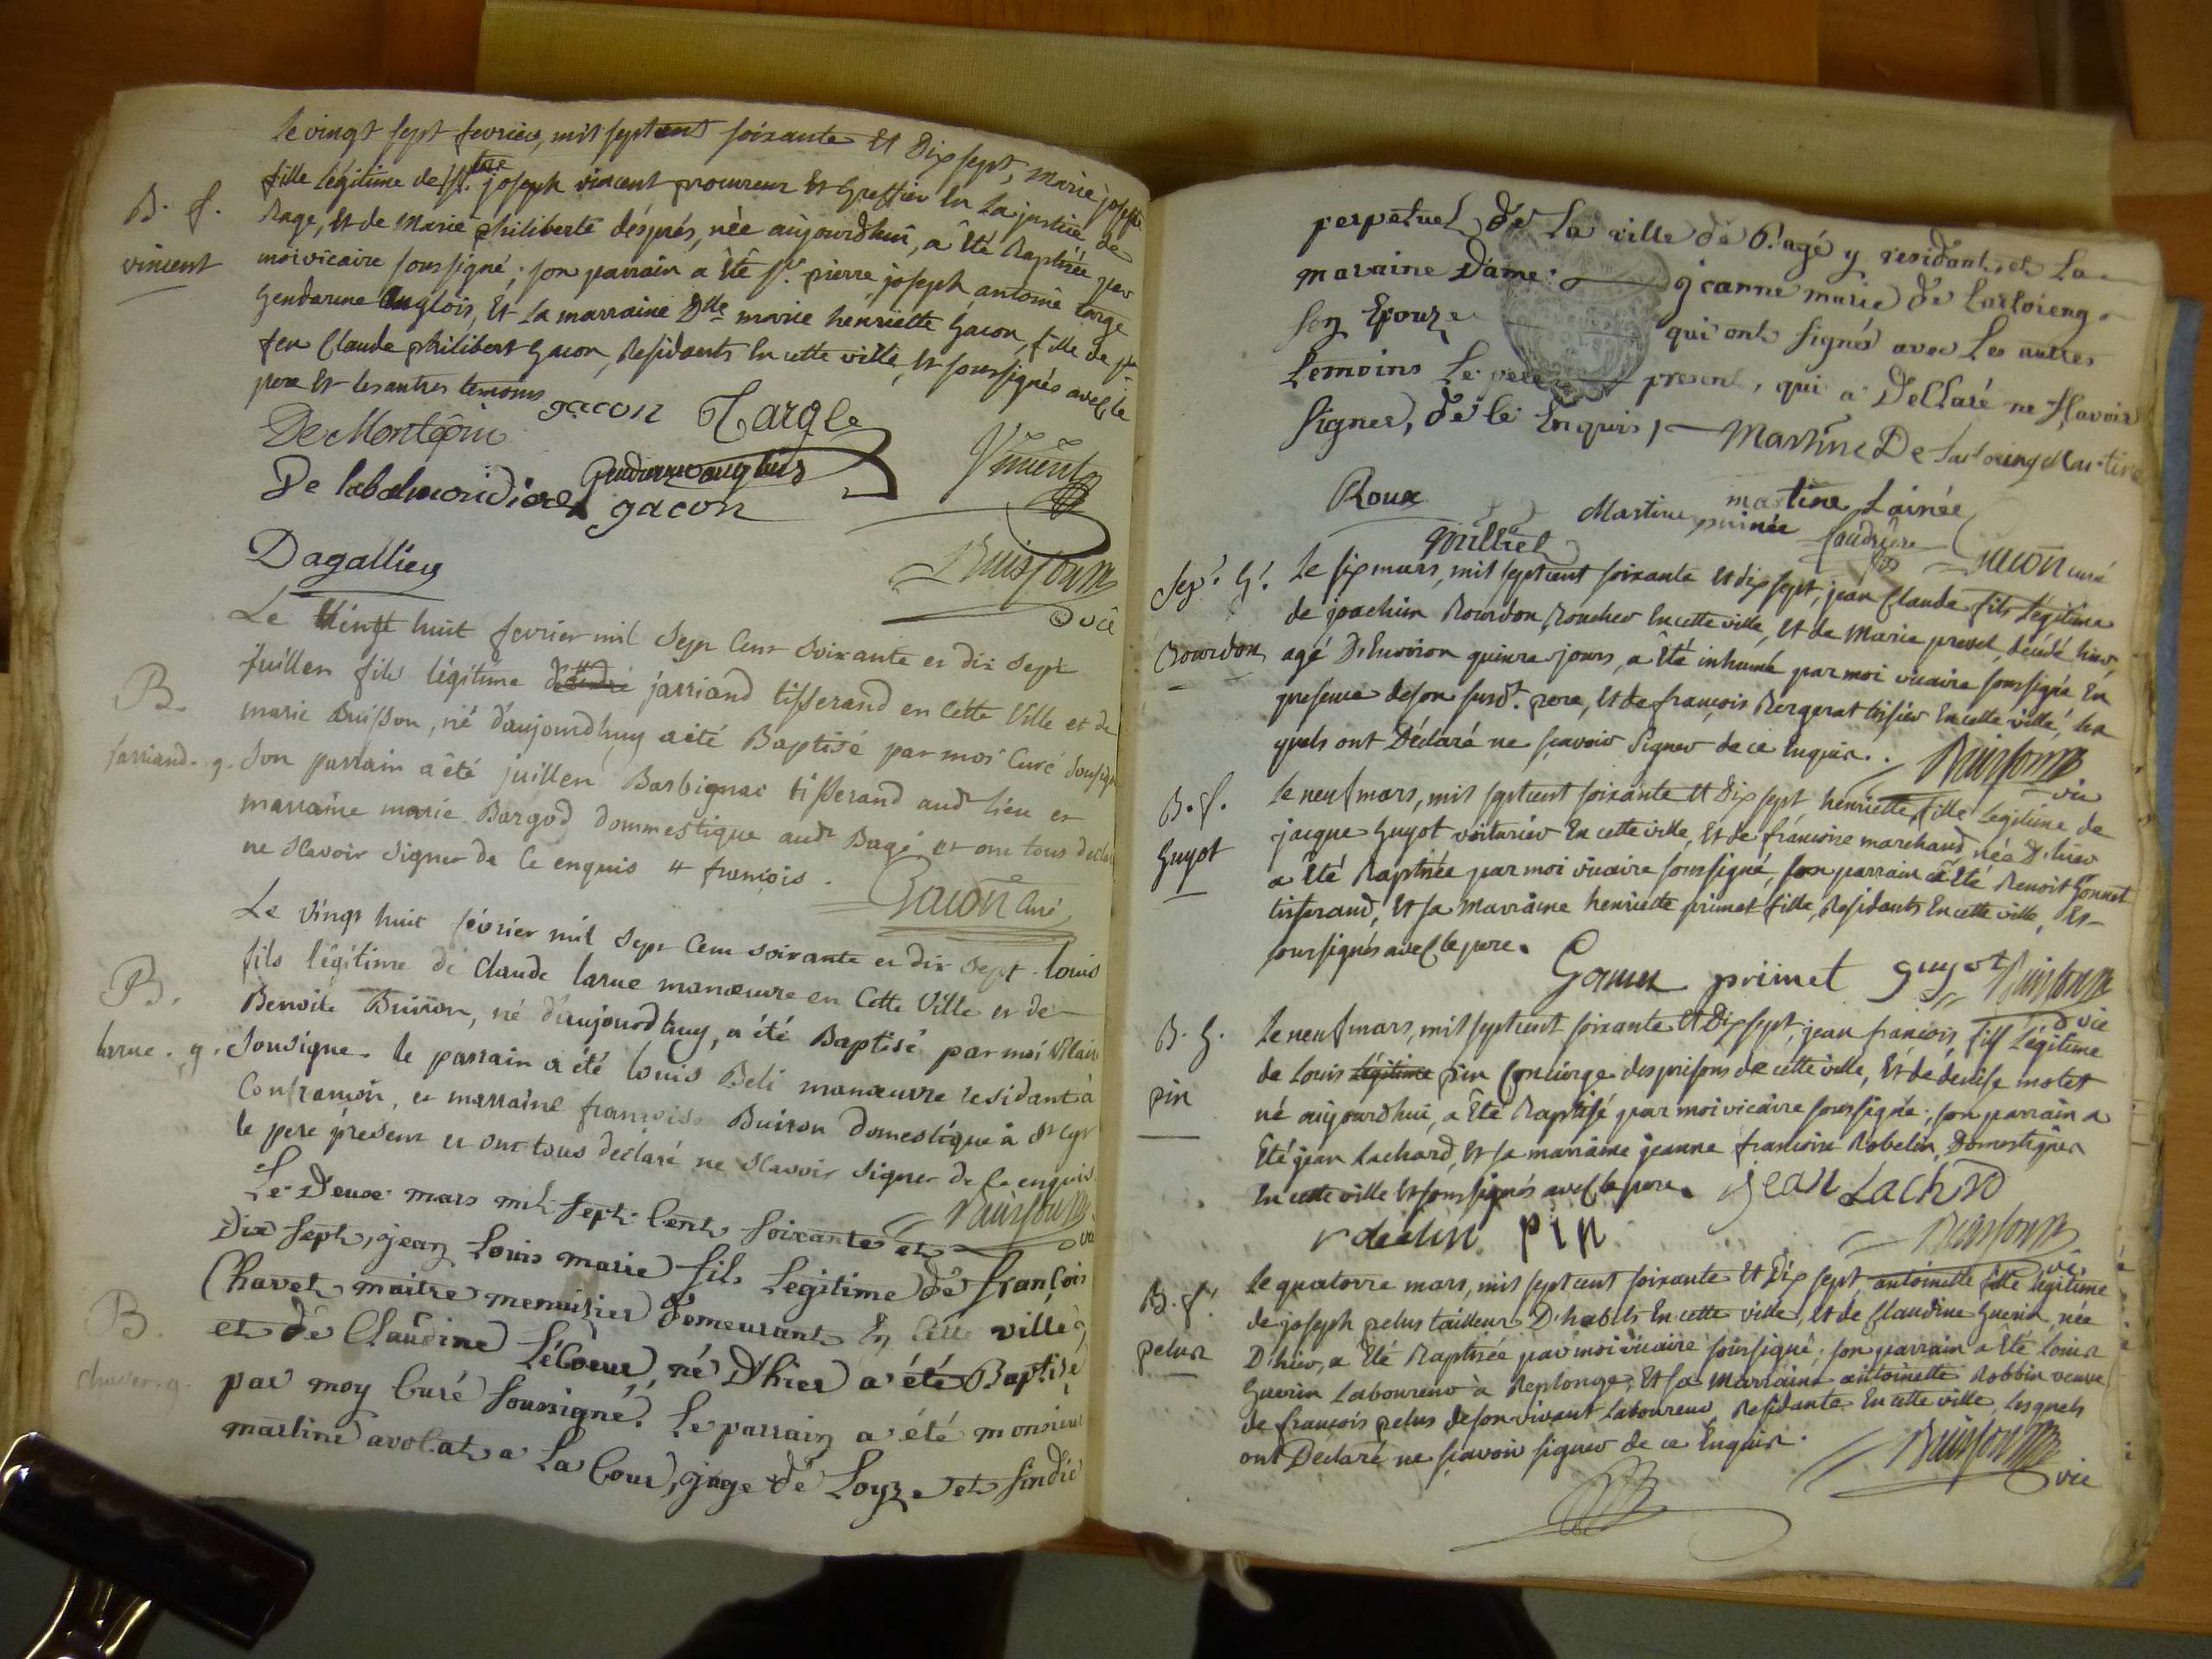 le vingt sept fevrier, mil sept cent soixante Et Dix sept, marie josephe
fille légitime de Sr. joseph vincent procureur Et Greffier En La justice de
Bage, Et de Marie philiberte déprés, née aujourdhui, a Eté Baptisée par
B. f.
vincent
moi vicaire soussigné; son parrain a Eté Sr. pierre joseph antoine targe
Gendarme Anglois, Et La marraine Dlle marie henriette Gacon, fille de
feu Claude philibert Gacon, Residents En cette ville, Et soussignés avec le
pere Et les autres temoins
gacon Targe
De Montépin
Gendarme anglois
Vincent
De labalmondiere
gacon
Dagallier
Buisson
vic
Le Vingt huit fevrier mil Sept Cent Soixante et dix Sept
Juillen fils légitime jarriand tisserand en Cette Ville et de
B.
Jarriand. g.
marie Buisson, né d'aujourdhuy a été Baptisé par moi Curé Sousigné
Son parrain a été juillen Barbignac tisserand audt lieu et
marraine marie Bargod dommestique audt Bagé et ont tous declaré
ne Scavoir Signer de Ce enquis # francois.
Gacon Curé
Le Vingt huit février mil Sept Cent Soixante et dix Sept louis
B.
larue. g.
fils légitime de Claude larue manœuvre en Cette Ville et de
Benoite Buisson, né d'aujourdhuy, a été Baptisé par moi Vicaire
Sousigné. le parrain a été louis Beli manœuvre residant à
Confrançon, et marraine françoise Buisson domestique à St Cyr
le pere présent et ont tous declaré ne Scavoir Signer de Ce enquis.
Buisson
vic
Le Deux mars mil Sept Cent Soixante et
Dix Sept, jean Louis marie fils Legitime de françois
B.
chavet. g.
Chavet maitre menuisier demeurant En Cette ville
et de Claudine LeCoeur, né D'hier a été Baptisé
par moy Curé Soussigné. Le parrain a été monsieur
martine avocat a La Cour, juge de Loyze et Sindic
perpetuel de La ville de Bagé y residant, et La
maraine Dame jeanne marie de
Son Epouze qui ont Signés avec Les autres
temoins Le pere present, qui a Declaré ne Scavoir
Signer, de Ce Enquis
Martine De Martine
Roux
martine Lainée
Martine puinée
Gacon curé
Sepr. G.
Bourdon
le six mars, mil sept cent soixante Et dix sept, jean Claude fils Légitime
de joachim Bourdon, Boucher En cette ville, Et de Marie prevel, décédé hier,
agé D'Environ quinze jours, a Eté inhumé par moi vicaire soussigné En
presence de son susdt. pere, Et de francois Bergerat En cette ville, les
quels ont Déclaré ne scavoir Signer de ce Enquis.
Buisson
vic
B. f.
Guyot
le neuf mars, mil sept cent soixante Et Dix sept henriette, fille Legitime de
jacque Guyot voiturier En cette ville, Et de francoise marchand née D'hier
a Eté Baptisée par moi vicaire soussigné, son parrain a Eté Benoit Gonnet
tisserand, Et sa Marraine henriette primet fille, Residants En cette ville, Et
soussignés avec le pere.
primet guyot Buisson
vic
B. G.
pin
le neuf mars, mil sept cent soixante Et Dix sept, jean francois, fils Légitime
de Louis Légitime pin Concierge des prisons de cette ville, Et de denise motet
né aujourdhui, a Eté Baptisé par moi vicaire soussigné; son parrain a
Eté jean Lachard, Et sa marraine jeanne francoise Robelin, Domestiques
En cette ville Et soussignés avec le pere.
jean Lachard
pin
Buisson
vic
B. f.
pelus
le quatorze mars, mil sept cent soixante Et Dix sept antoinette fille légitime
de joseph pelus tailleur D'habits En cette ville, Et de Claudine Guerin, née
D'hier, a Eté Baptisée par moi vicaire soussigné; son parrain a Eté Louis
Guerin Laboureur à Replonge, Et sa Marraine antoinette Robbin veuve
de francois pelus de son vivant Laboureur Residante En cette ville, Lesquels
ont Declaré ne scavoir signer de ce Enquis.
Buisson
vic